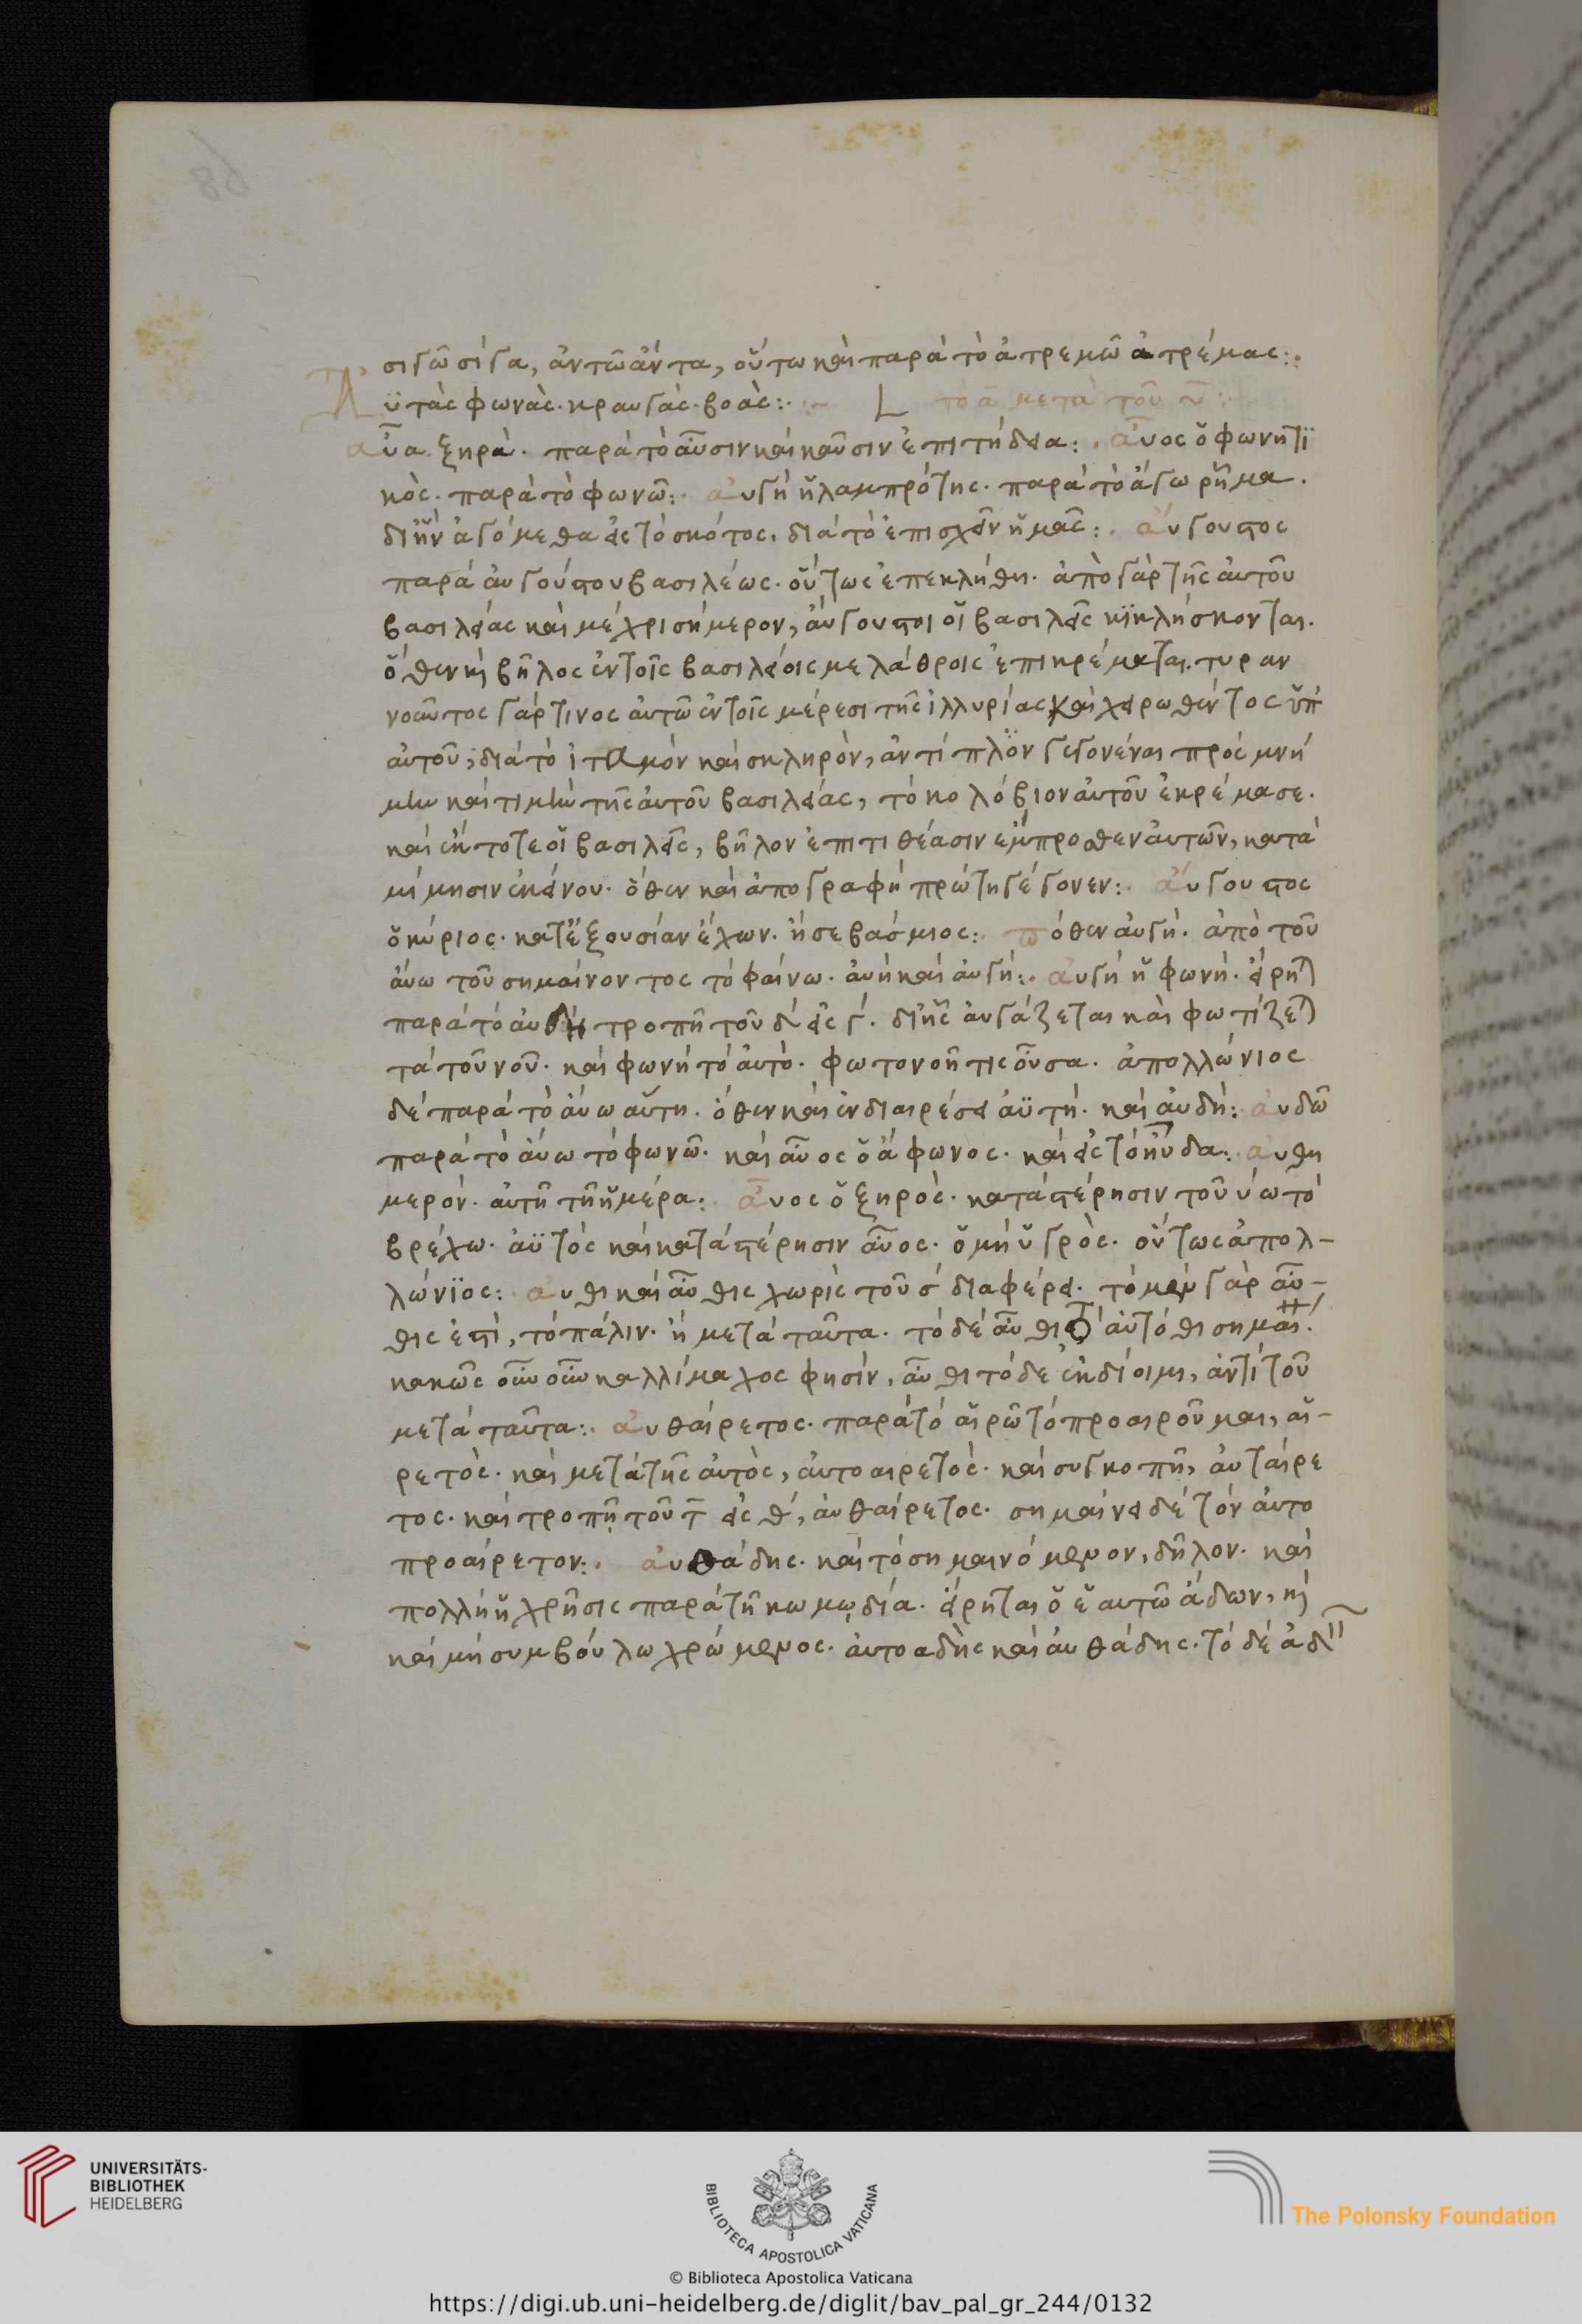 σιγῶ σίγα, ἀντῶ ἄντα, οὕτω καὶ παρὰ τὸ ἀτρεμῶ ἀτρέμας:.
Αὐτὰς φωνὰς. κραυγάς. βοάς:. τὸ α μετὰ τοῦ υ:
αὖα ξηρά. παρὰ τὸ αὖσιν καὶ καῦσιν ἐπιτήδεια:. αὖος ὁ φωνητι
κός. παρὰ τὸ φωνῶ:. αὐγή ἡ λαμπρότης. παρὰ τὸ ἄγω ῥῆμα.
δι ἣν ἀγόμεθα εἰς τὸ σκότος. διὰ τὸ ἐπισχεῖν ἡμᾶς:. αὔγουστος
παρὰ αὐγούστου βασιλέως. οὕτως ἐπεκλήθη. ἀπὸ γὰρ τῆς αὐτοῦ
βασιλείας καὶ μέχρι σήμερον, αὔγουστοι οἱ βασιλεῖς κικλήσκονται.
ὅθεν καὶ βῆλος ἐν τοῖς βασιλείοις μελάθροις ἐπικρέμαται. τυραν
νοῦντος γάρ τινος αὐτῶ ἐν τοῖς μέρεσι τῆς ἰλλυρίας καὶ χειρωθέντος ὑπ
αὐτοῦ, διὰ τὸ ἰταμὸν καὶ σκληρὸν, ἀντίπλον γεγονέναι πρὸς μνή
μην καὶ τιμὴν τῆς αὐτοῦ βασιλείας, τὸ κολόβιον αὐτοῦ ἐκρέμασε.
καὶ ἔκτοτε οἱ βασιλεῖς, βῆλον ἐπιτιθέασιν ἔμπροσθεν αὐτῶν, κατὰ
μίμησιν ἐκείνου. ὅθεν καὶ ἀπογραφὴ πρώτη γέγονεν:. αὔγουστος
ὁ κύριος. κατ ἐξουσίαν ἔχων. ἢ σεβάσμιος:. πόθεν αὐγή. ἀπὸ τοῦ
αὔω τοῦ σημαίνοντος τὸ φαίνω. αὐὴ καὶ αὐγή:. αὐγή ἡ φωνή. εἴρηται
παρὰ τὸ αὐδή τροπῇ τοῦ δ εἰς γ. δι ἧς αὐγάζεται καὶ φωτίζεται
τὰ τοῦ νοῦ. καὶ φωνὴ τὸ αὐτό. φωτονοή τις οὖσα. ἀπολλώνιος
δὲ παρὰ τὸ αὔω αὕτη. ὅθεν καὶ ἐν διαιρέσει ἀϋτή. καὶ αὐδή:. αὐδῶ
παρὰ τὸ αὔω τὸ φωνῶ. καὶ αὖος ὁ ἄφωνος. καὶ εἰς τὸ ηὔδα:. αὐθη
μερόν. αὐτῆ τῆ ἡμέρα:. αὖος ὁ ξηρός. κατὰ στέρησιν τοῦ ὕω τὸ
βρέχω. ἀϋτός καὶ κατὰ στέρησιν αὖος. ὁ μὴ ὑγρός. οὕτως ἀπολ-
λώνιος:. αὖθι καὶ αὖθις χωρὶς τοῦ σ διαφέρει. τὸ μὲν γὰρ αὖ-
θις ἐστὶ, τὸ πάλιν. ἢ μετὰ ταῦτα. τὸ δὲ αὖθι τὸ αὐτόθι σημαίνει.
κακῶς οὖν οὖν καλλίμαχος φησίν, αὖθι τὸ δ ἐκδίοιμι, ἀντὶ τοῦ
μετὰ ταῦτα:. αὐθαίρετος. παρὰ τὸ αἱρῶ τὸ προαιροῦμαι, αἱ-
ρετός. καὶ μετὰ τῆς αὐτός, αὐτοαιρετός. καὶ συγκοπῆ, αὐταίρε
τος. καὶ τροπῆ τοῦ τ εἰς θ, αὐθαίρετος. σημαίνει δὲ τὸν αὐτο
προαίρετον:. αὐθάδης. καὶ τὸ σημαινόμενον, δῆλον. καὶ
πολλὴ ἡ χρῆσις παρὰ τῆ κωμωδία. εἴρηται ὁ ἑαυτῶ ἅδων, κὶ
καὶ μὴ συμβούλω χρώμενος. αὐτοαδης καὶ αὐθάδης. τὸ δὲ ἀδ